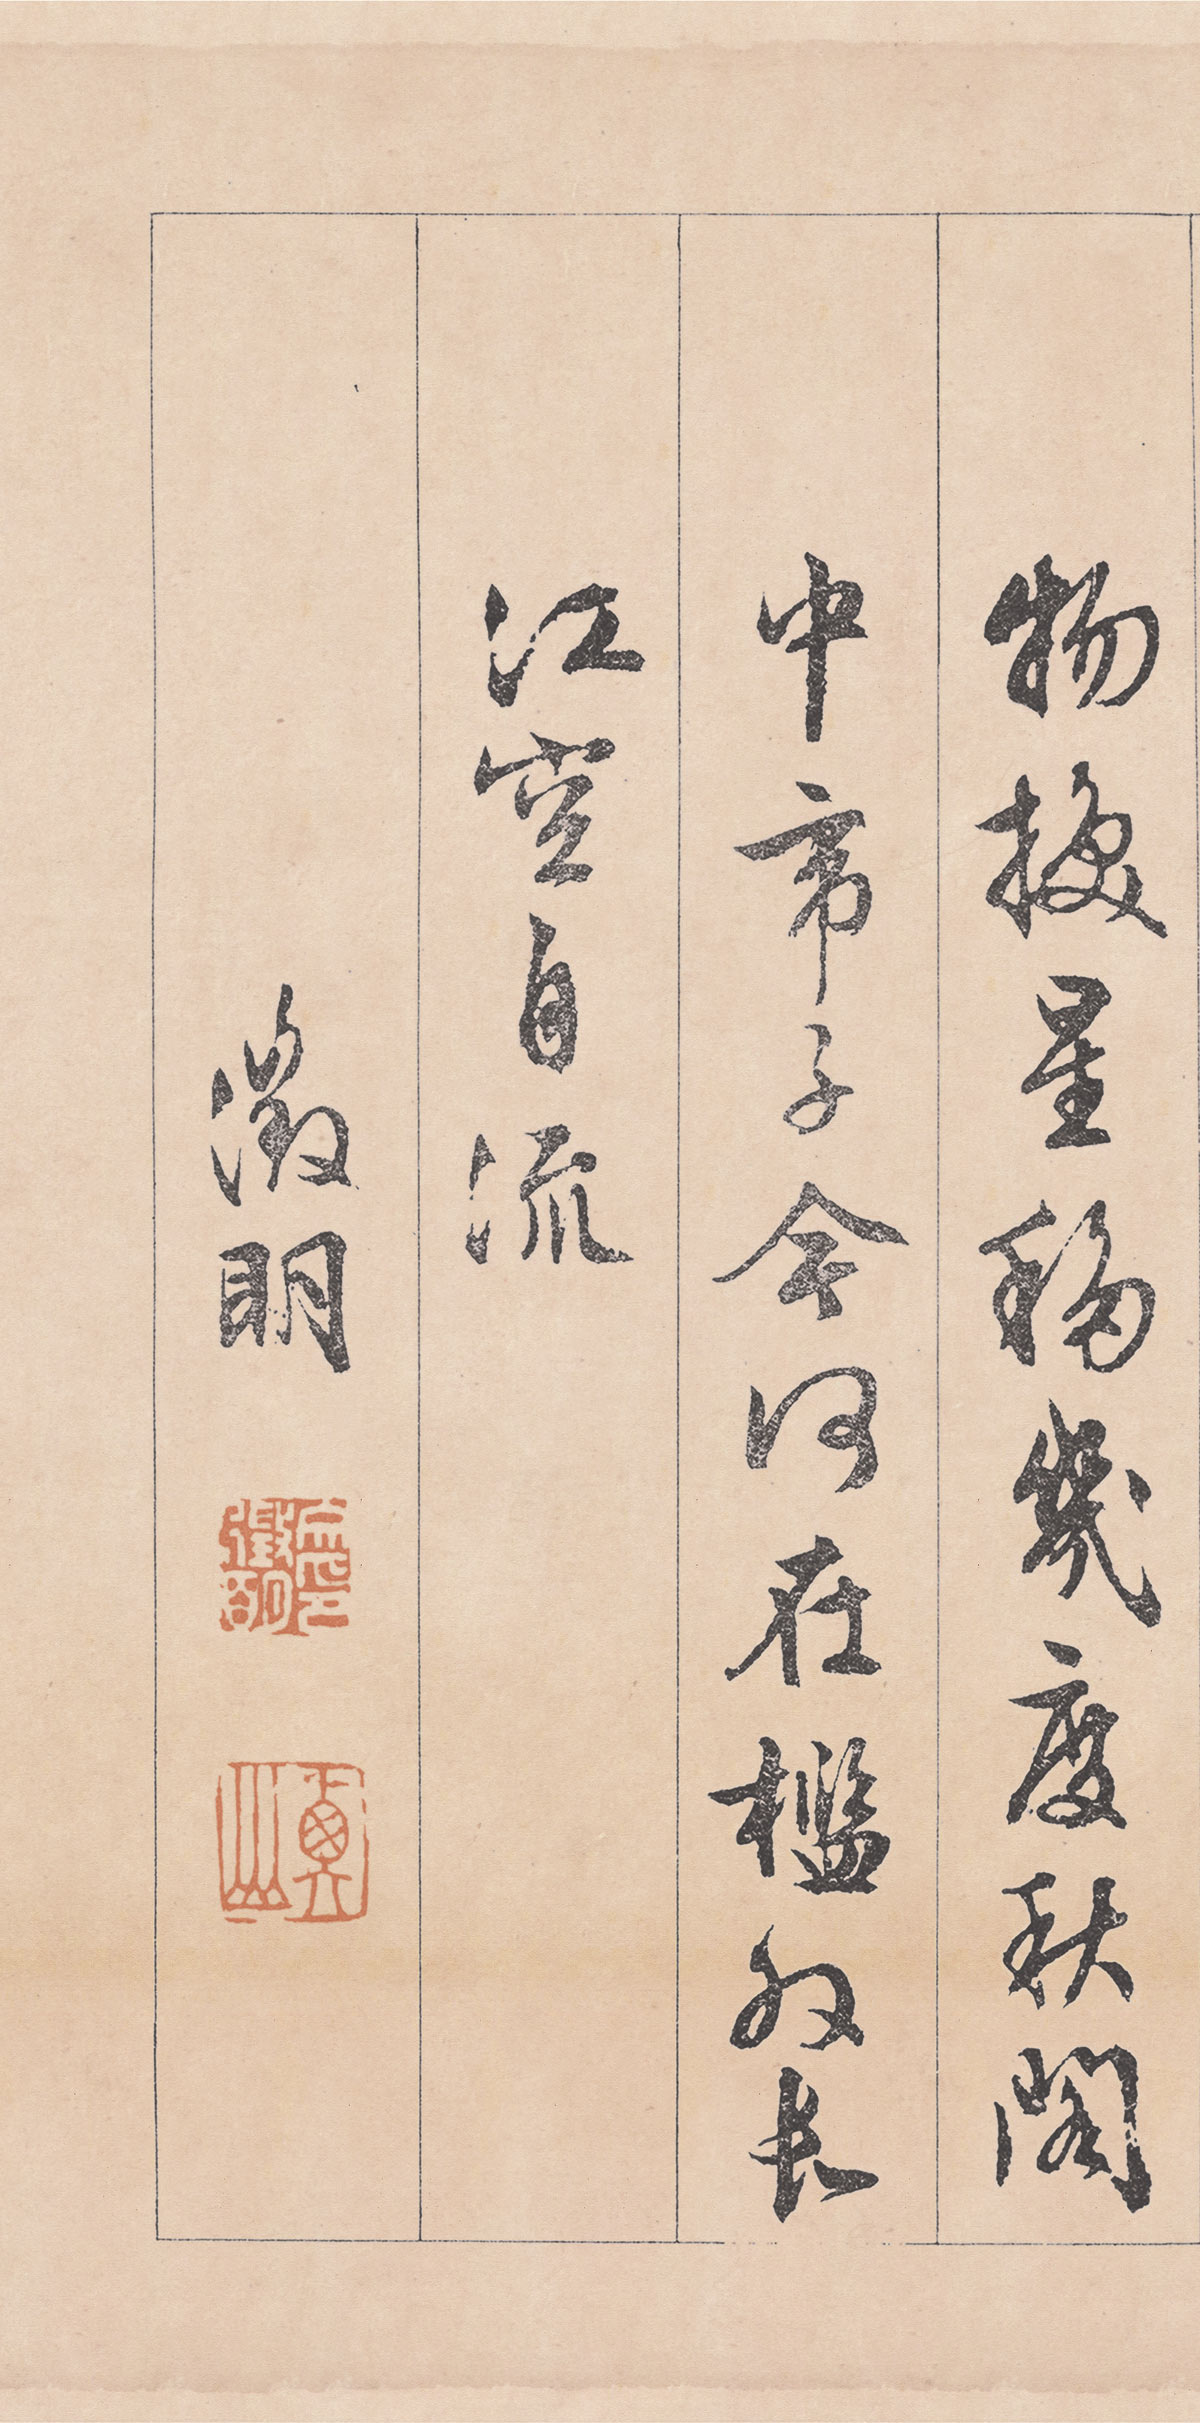 物換星移幾度秋閣
中帝子今何在檻外長
江空自流
徵明
衡山